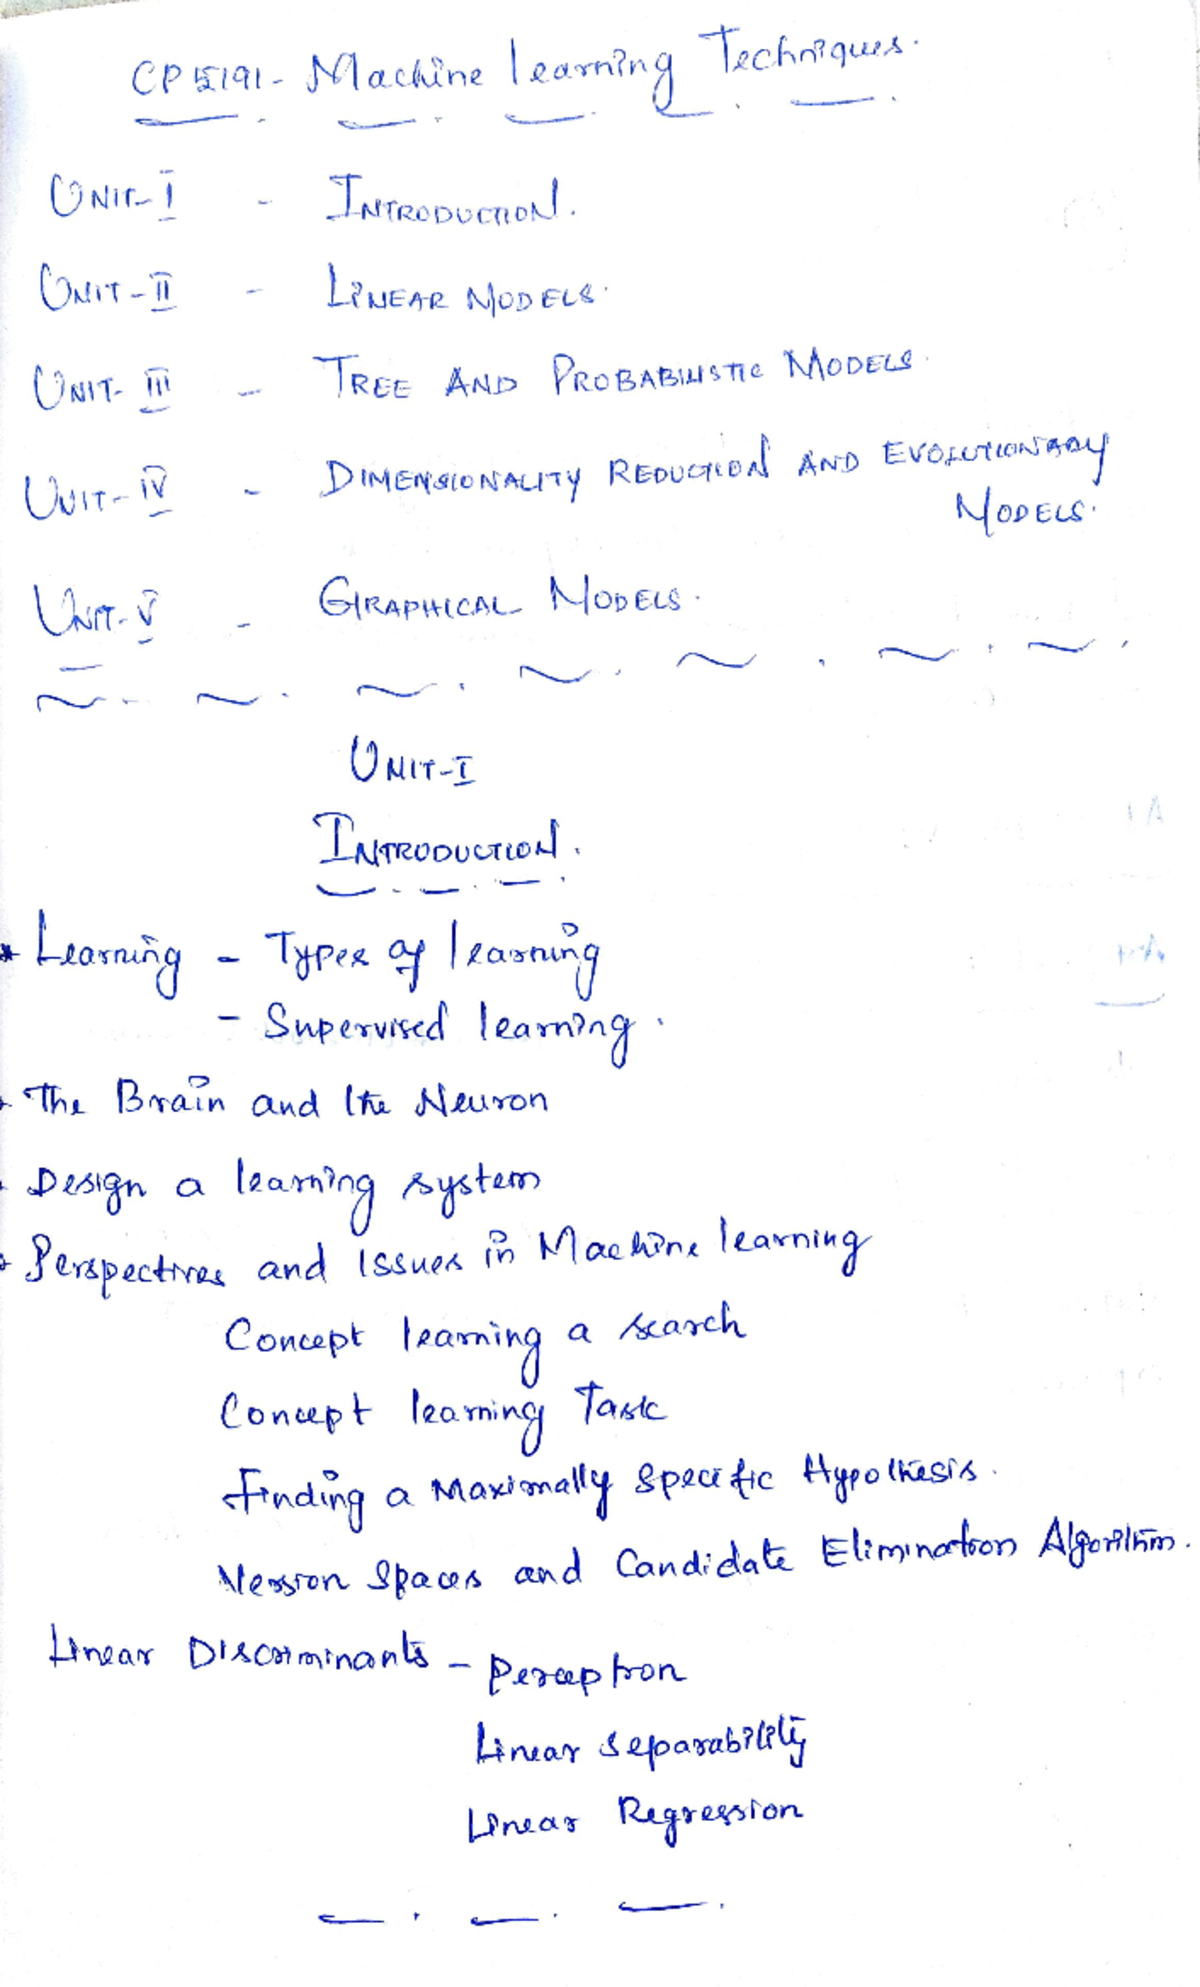 CP5191 - Machine learning Techniques.
UNIT-I - INTRODUCTION.
UNIT-II - LINEAR MODELS.
UNIT-III - TREE AND PROBABILISTIC MODELS.
UNIT-IV - DIMENSIONALITY REDUCTION AND EVOLUTIONARY
MODELS.
UNIT-V - GRAPHICAL MODELS.
UNIT-I
INTRODUCTION.
* Learning - Types of learning
- Supervised learning.
* The Brain and the Neuron
* Design a learning system
* Perspectives and Issues in Machine learning
Concept learning a search
Concept learning Task
Finding a Maximally Specific Hypothesis.
Version Spaces and Candidate Elimination Algorithm.
Linear Discriminants - Perceptron
Linear Separability
Linear Regression